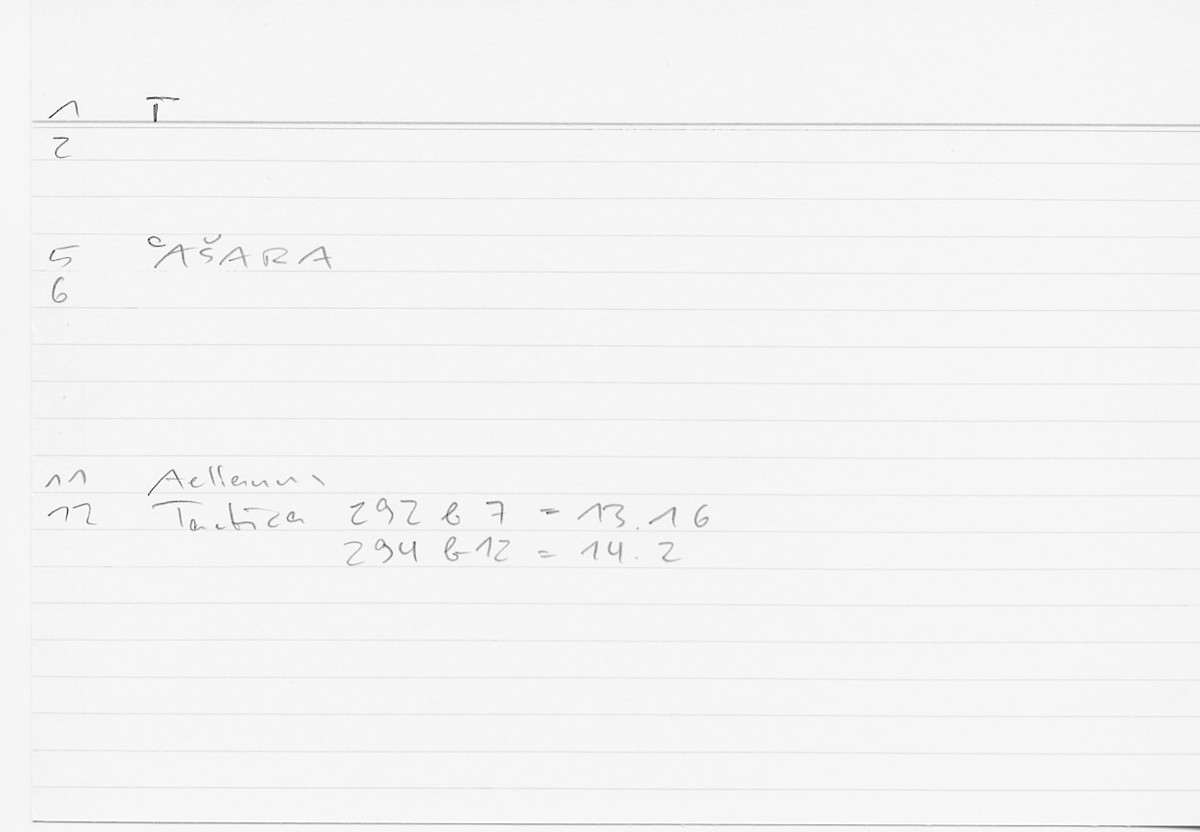 1 T
2
5 ʿAŠARA
6
11 Aelianus,
12 Tactica 292 b 7 = 13.16
294 b 12 = 14.2